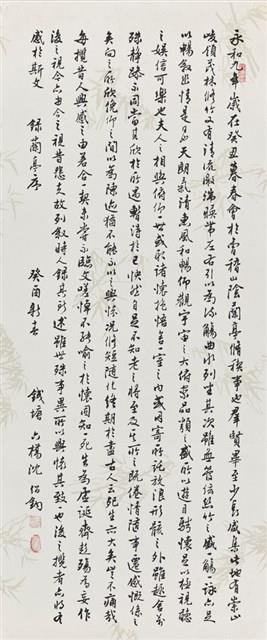 永和九年歲在癸丑暮春會於會稽山陰蘭亭脩稧事也羣賢畢至少長咸集此地有崇山
峻領茂林脩竹又有清流激湍暎帶左右引以為流觴曲水列坐其次雖無管絃絲竹之盛一觴一詠亦足
以暢敘幽情是日也天朗氣清惠風和暢仰觀宇宙之大俯察品類之盛所以遊目騁懷足以極視聽
之娛信可樂也夫人之相與俯仰一世或取諸懷抱悟言一室之內或因寄所託放浪形骸之外雖趣舍萬
殊靜躁不同當其欣於所遇暫得於己怏然自足不知老之將至及其所之既倦情隨事遷感慨係之
矣向之所欣俛仰之間以為陳迹猶不能不以之興懷況脩短隨化終期於盡古人云死生亦大矣豈不痛哉
每攬昔人興感之由若合一契未嘗不臨文嗟悼不能喻之於懷固知一死生為虛誕齊彭殤為妄作
後之視今亦由今之視昔悲夫故列敘時人錄其所述雖世殊事異所以興懷其致一也後之攬者亦將有
感於斯文 錄蘭亭序 癸酉新春 錢塘六橋沈